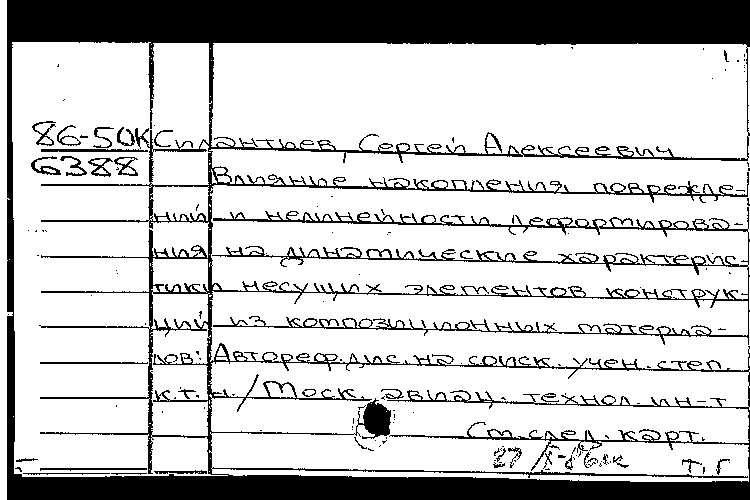 86-50К Силантьев, Сергей Алексеевич
6388 Влияние накопления поврежде-
ний и нелинейности деформирова-
ния на динамические характерис-
тики несущих элементов конструк-
ций из композиционных материа-
лов: Автореф. дис. на соиск. учен. степ.
к.т.н. / Моск. авиац. технол. ин-т
См. след. карт.
27 Т, Г